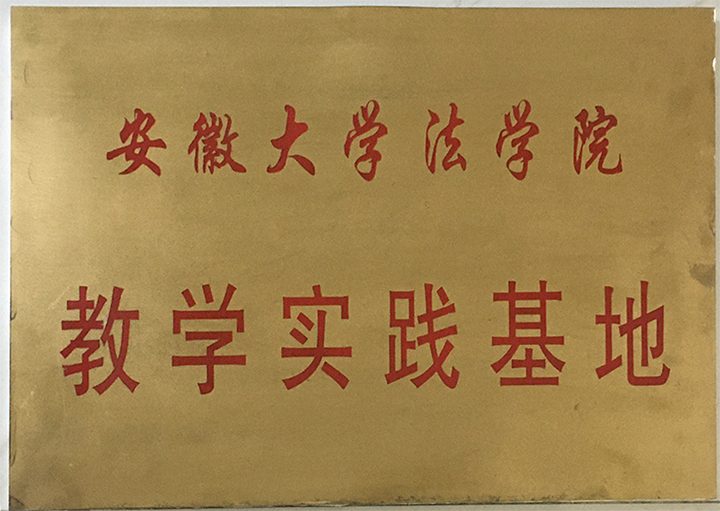 安徽大学法学院
教学实践基地